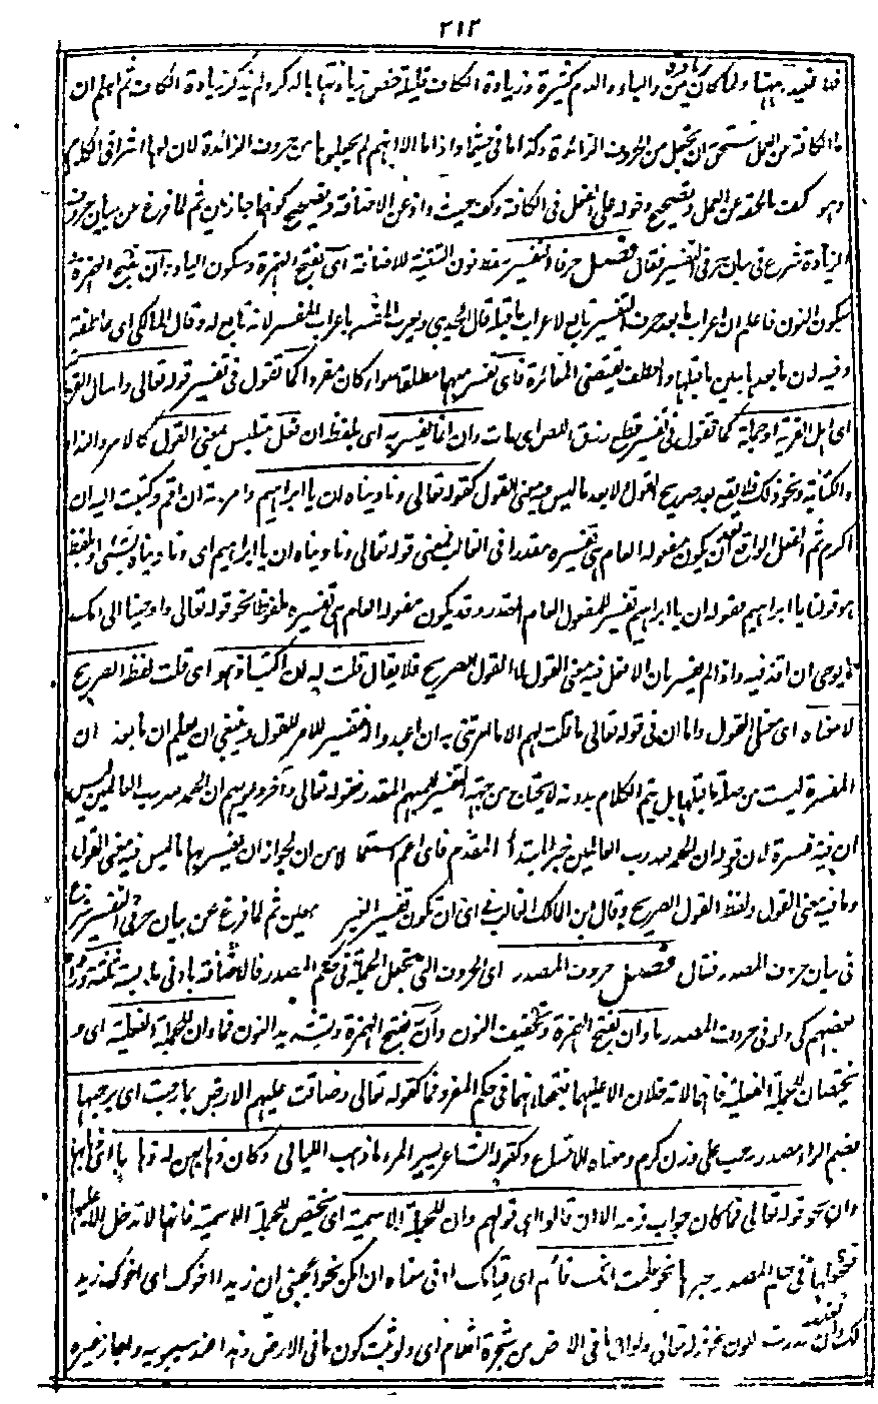 ٢١٣
ولما كان من والباء واللام كثيرة وزيادة الكاف قليلة خص زيادتها بالذكر ولم يذكر زيادة الكاف ثم اعلم ان
ما الكافة عن العمل تستحق ان يجعل من الحروف الزائدة وكذا ما فى حيثما واذ ما الا انهم لم يجعلوها من حروف الزائدة لان لها اثرا فى الكلام
وهو كف ما لحقته عن العمل وتصحيح دخوله على الفعل فى الكافة وكف حيث واذ عن الاضافة وتصحيح كونهما جازمين ثم لما فرغ عن بيان حروف
الزيادة شرع فى بيان حرفى التفسير فقال فصل حرفا التفسير سقط نون التثنية للاضافة اى بفتح الهمزة وسكون الياء وان بفتح الهمزة
وسكون النون فاعلم ان اعراب ما بعد حرف التفسير تابع لاعراب ما قبله قال ويعرب المفسر باعراب المفسر لانه تابع له وقال المالكى اى عاطفة
وفيه لان ما بعدها يبين ما قبلها والعطف يقتضى المغائرة فاى تفسر مبهما مطلقا سواء كان مفردا كما تقول فى تفسير قوله تعالى واسأل القرية
اى اهل القرية او جملة كما تقول فى تفسير قطع رزقه اى مات وان انما يفسر به اى بلفظ ان فعل متلبس بمعنى القول كالامر والنداء
والكتابة ونحو ذلك فلا يقع بعد صريح القول ولا بعد ما ليس فيه معنى القول كقوله تعالى وناديناه ان يا ابراهيم وامرته ان اقم وكتبت اليه ان
اكرم ثم الفعل الواقع قبل ان يكون مفعوله العام الذى تفسيره مقدرا فى الغالب فمعنى قوله تعالى وناديناه ان يا ابراهيم اى وناديناه بشئ او بلفظ
هو قولنا يا ابراهيم فقوله ان يا ابراهيم تفسير للمفعول العام المقدر وقد يكون مفعوله العام الذى تفسيره ملفوظا نحو قوله تعالى واوحينا الى امك
ما يوحى ان اقذفيه واذا لم يفسر بان الا فعل فيه معنى القول لا القول الصريح فلا يقال قلت له ان اكتب اذ هو اى قلت لفظ الصريح
لا معناه اى معنى القول واما ان فى قوله تعالى ما قلت لهم الا ما امرتنى به ان اعبدوا الله فتفسير للامر لا للقول وينبغى ان يعلم ان ما بعد ان
المفسرة ليست من صلة ما قبلها بل يتم الكلام بدونه لا يحتاج من جهة التفسير للمبهم المقدر فقوله تعالى وآخر دعويهم ان الحمد لله رب العالمين ليس
ان فيه مفسرة لان قوله ان الحمد لله رب العالمين خبر المبتدأ المقدم فاى اعم استعمالا من ان لجواز ان يفسر بها ما ليس فيه معنى القول
وما فيه معنى القول ولفظ القول الصريح وقال ابن المالك الغالب فى اى ان تكون تفسيرا لغير معين ثم لما فرغ عن بيان حرفى التفسير شرع
فى بيان حروف المصدر فقال فصل حروف المصدر اى الحروف التى تجعل الجملة فى حكم المصدر فالاضافة بادنى ملابسة ثلثة وزاد
بعضهم كى ولو فى حروف المصدر ما وان بفتح الهمزة وتخفيف النون وان بفتح الهمزة وتشديد النون فما وان للجملة الفعلية اى
تختصان للجملة الفعلية فانهما لا تدخلان الا عليها فتجعلانها فى حكم المفرد فما كقوله تعالى وضاقت عليهم الارض بما رحبت اى برحبها
بضم الراء مصدر رحب على وزن كرم ومعناه الاتساع وكقول الشاعر يسر المرء ما ذهب الليالى وكان ذهابهن له ذهابا اى ذهابها
وان نحو قوله تعالى فما كان جواب قومه الا ان قالوا اى قولهم وان للجملة الاسمية اى تختص للجملة الاسمية فانها لا تدخل الا عليها
فتجعلها فى حكم المصدر نحو علمت انك قائم اى قيامك او فى معناه ان امكن نحو اعجبنى ان زيدا اخوك اى اخوة زيد
لون نحو قوله تعالى ولو ان ما فى الارض من شجرة اقلام اى ولو ثبت كون ما فى الارض وهذا عند سيبويه واجاز غيره